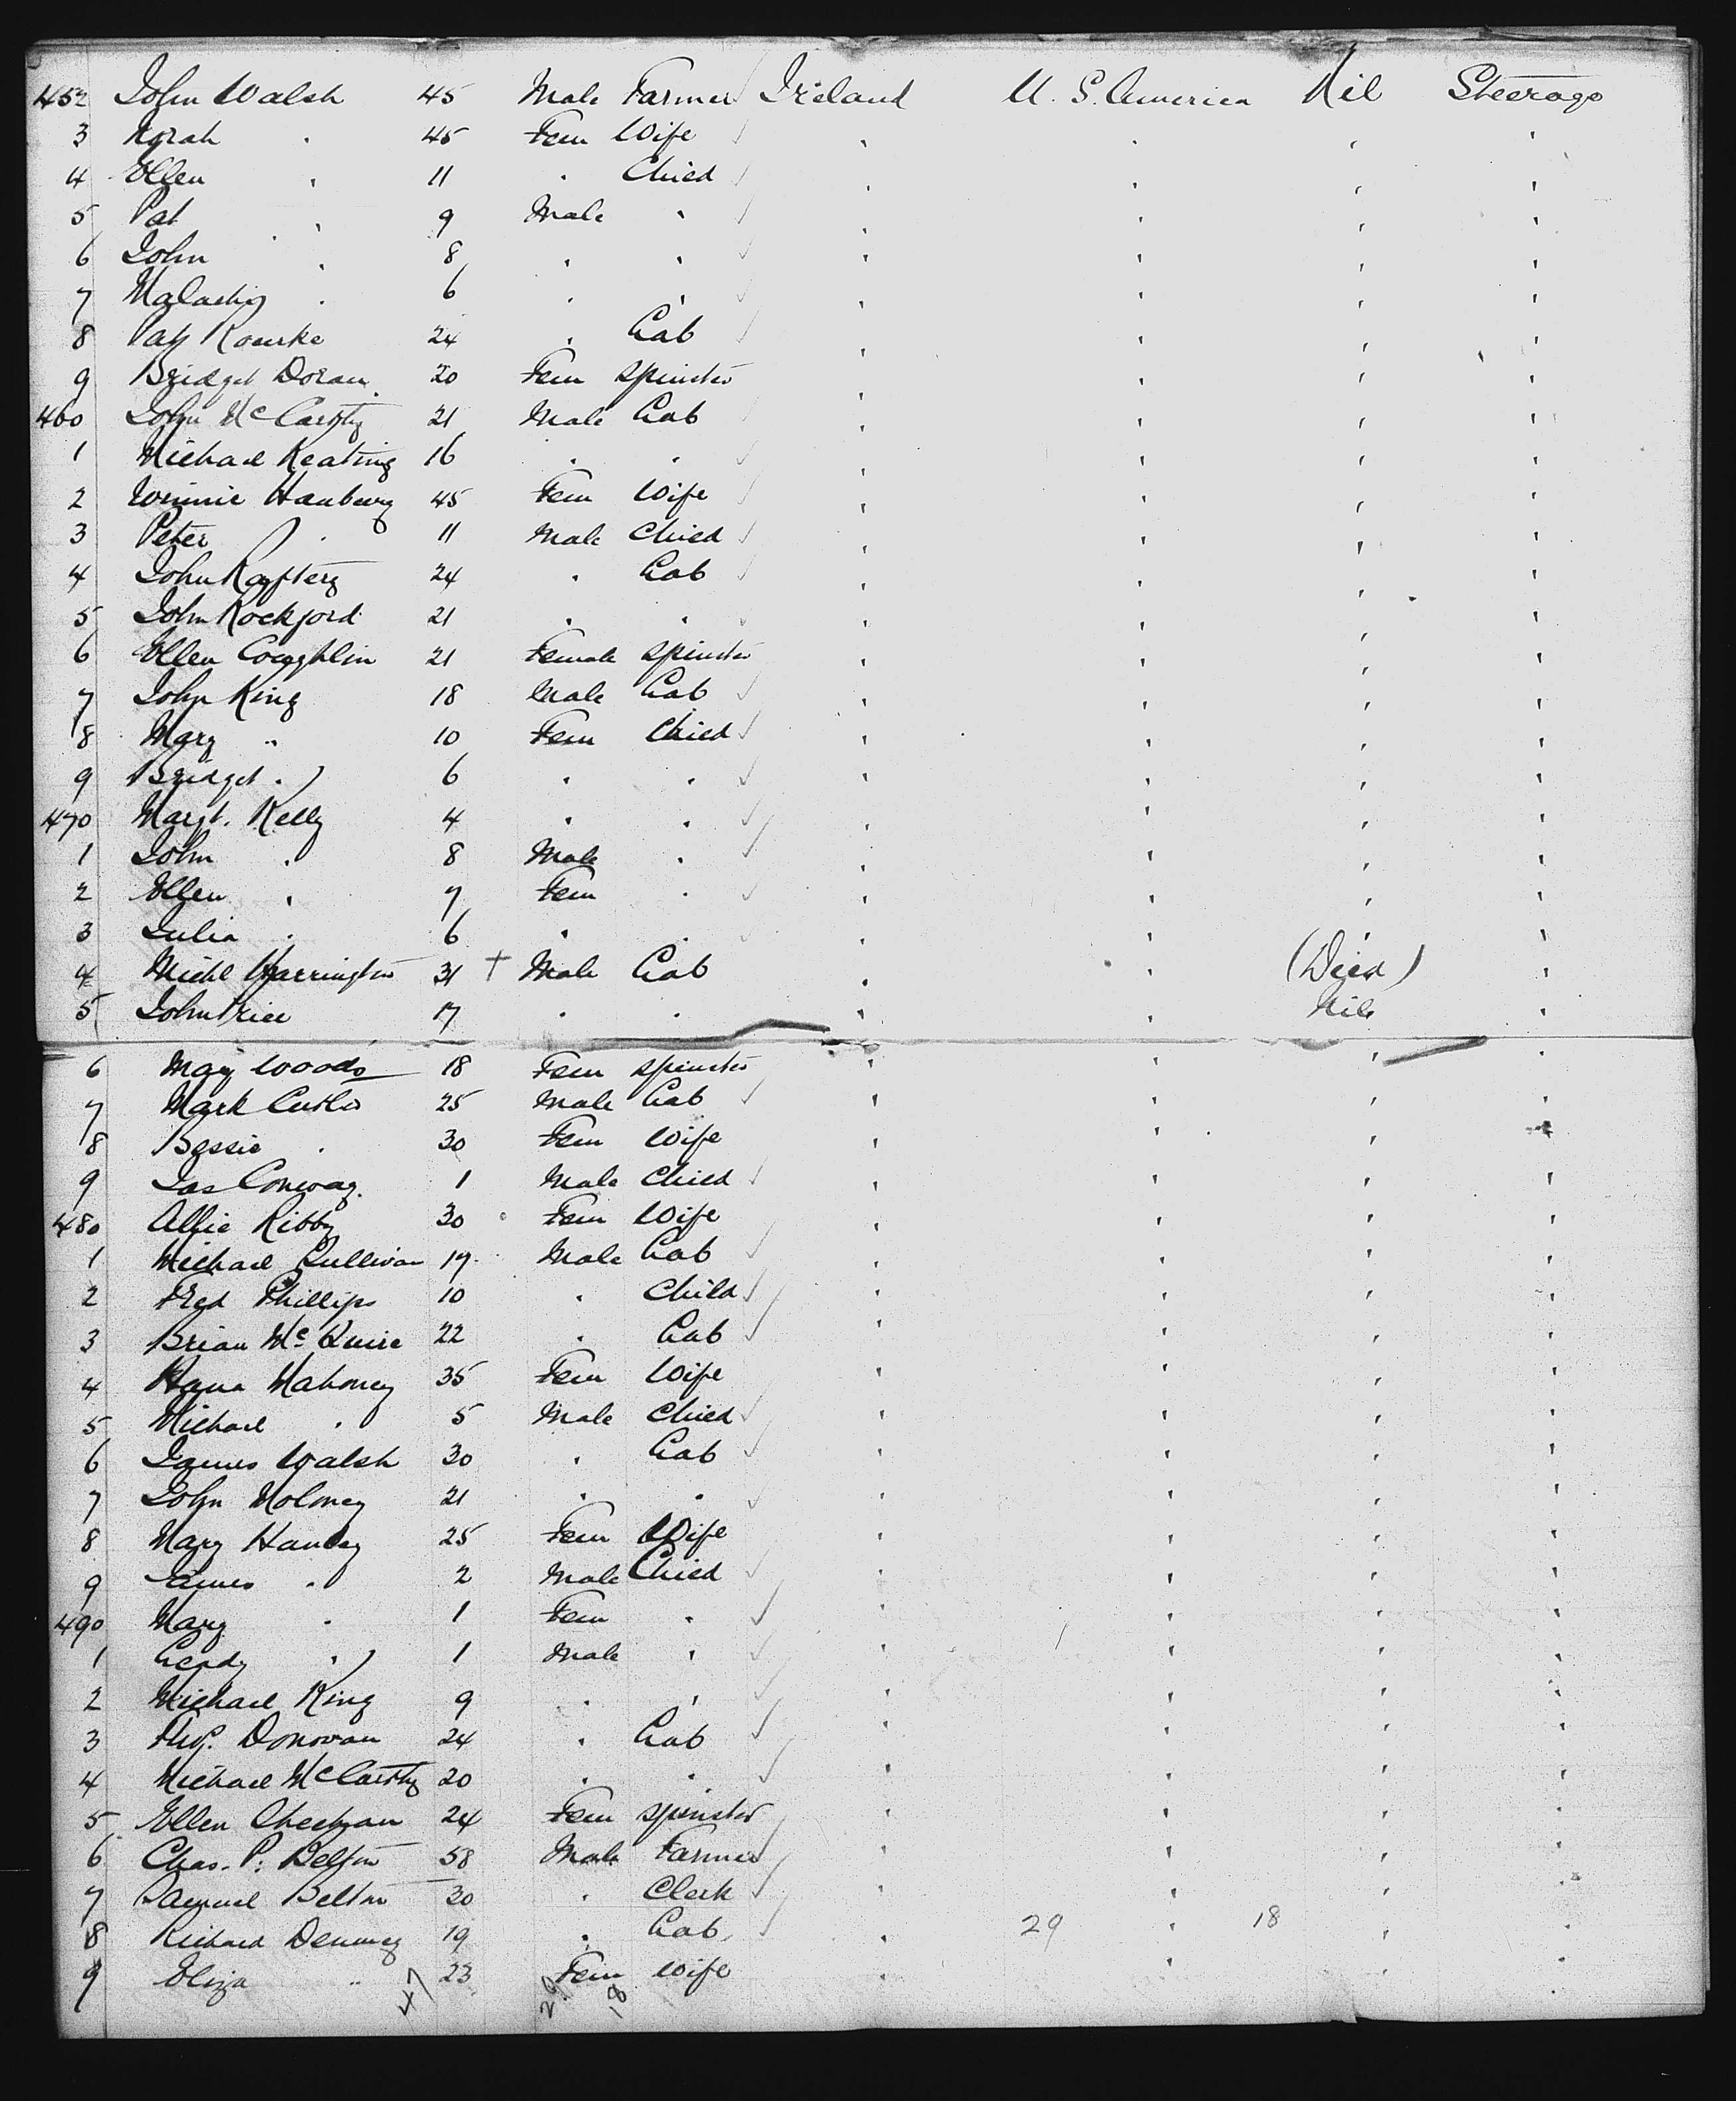 452 John Walsh 45 Male Farmer Ireland U. S. America Nil Steerage
3 Norah " 45 Fem Wife " " " "
4 Ellen " 11 " Child " " " "
5 Pat " 9 Male " " " " "
6 John " 8 " " " " " "
7 Malachy " 6 " " " " " "
8 Pat Rourke 24 " Lab " " " "
9 Bridget Doran 20 Fem Spinster " " " "
460 John McCarthy 21 Male Lab " " " "
1 Michael Keating 16 " " " " " "
2 Winnie Hanbury 45 Fem Wife " " " "
3 Peter " 11 Male Child " " " "
4 John Raftery 24 " Lab " " " "
5 John Rockford 21 " " " " " "
6 Ellen Coughlin 21 Female Spinster " " " "
7 John King 18 Male Lab " " " "
8 Mary " 10 Fem Child " " " "
9 Bridget " 6 " " " " " "
470 Margt. Kelly 4 " " " " " "
1 John " 8 Male " " " " "
2 Ellen " 7 Fem " " " " "
3 Julia " 6 " " " " " "
4 Michl Harrington 31 + Male Lab " " (Died) "
5 John Rice 17 " " " " Nil "
6 May Woods 18 Fem Spinster " " " "
7 Mark 25 Male Lab " " " "
8 Bessie " 30 Fem Wife " " " "
9 Jas Conway 1 Male Child " " " "
480 Allie Kibby 30 Fem Wife " " " "
1 Michael Sullivan 19 Male Lab " " " "
2 Fred Phillips 10 " Child " " " "
3 Brian McGuire 22 " Lab " " " "
4 Hana Mahoney 35 Fem Wife " " " "
5 Michael " 5 Male Child " " " "
6 James Walsh 30 " Lab " " " "
7 John Moloney 21 " " " " " "
8 Mary Hanley 25 Fem Wife " " " "
9 James " 2 Male Child " " " "
490 Mary " 1 Fem " " " " "
1 " 1 Male " " " " "
2 Michael King 9 " " " " " "
3 Donovan 24 " Lab " " " "
4 Michael McCarthy 20 " " " " " "
5 Ellen Sheehan 24 Fem Spinster " " " "
6 Chas. P. Belton 58 Male Farmer " " " "
7 Samuel Belton 30 " Clerk " " " "
8 Richard Denney 19 " Lab " 29 " 18 " "
9 Eliza " 23 Fem Wife " " " "
47 29 18